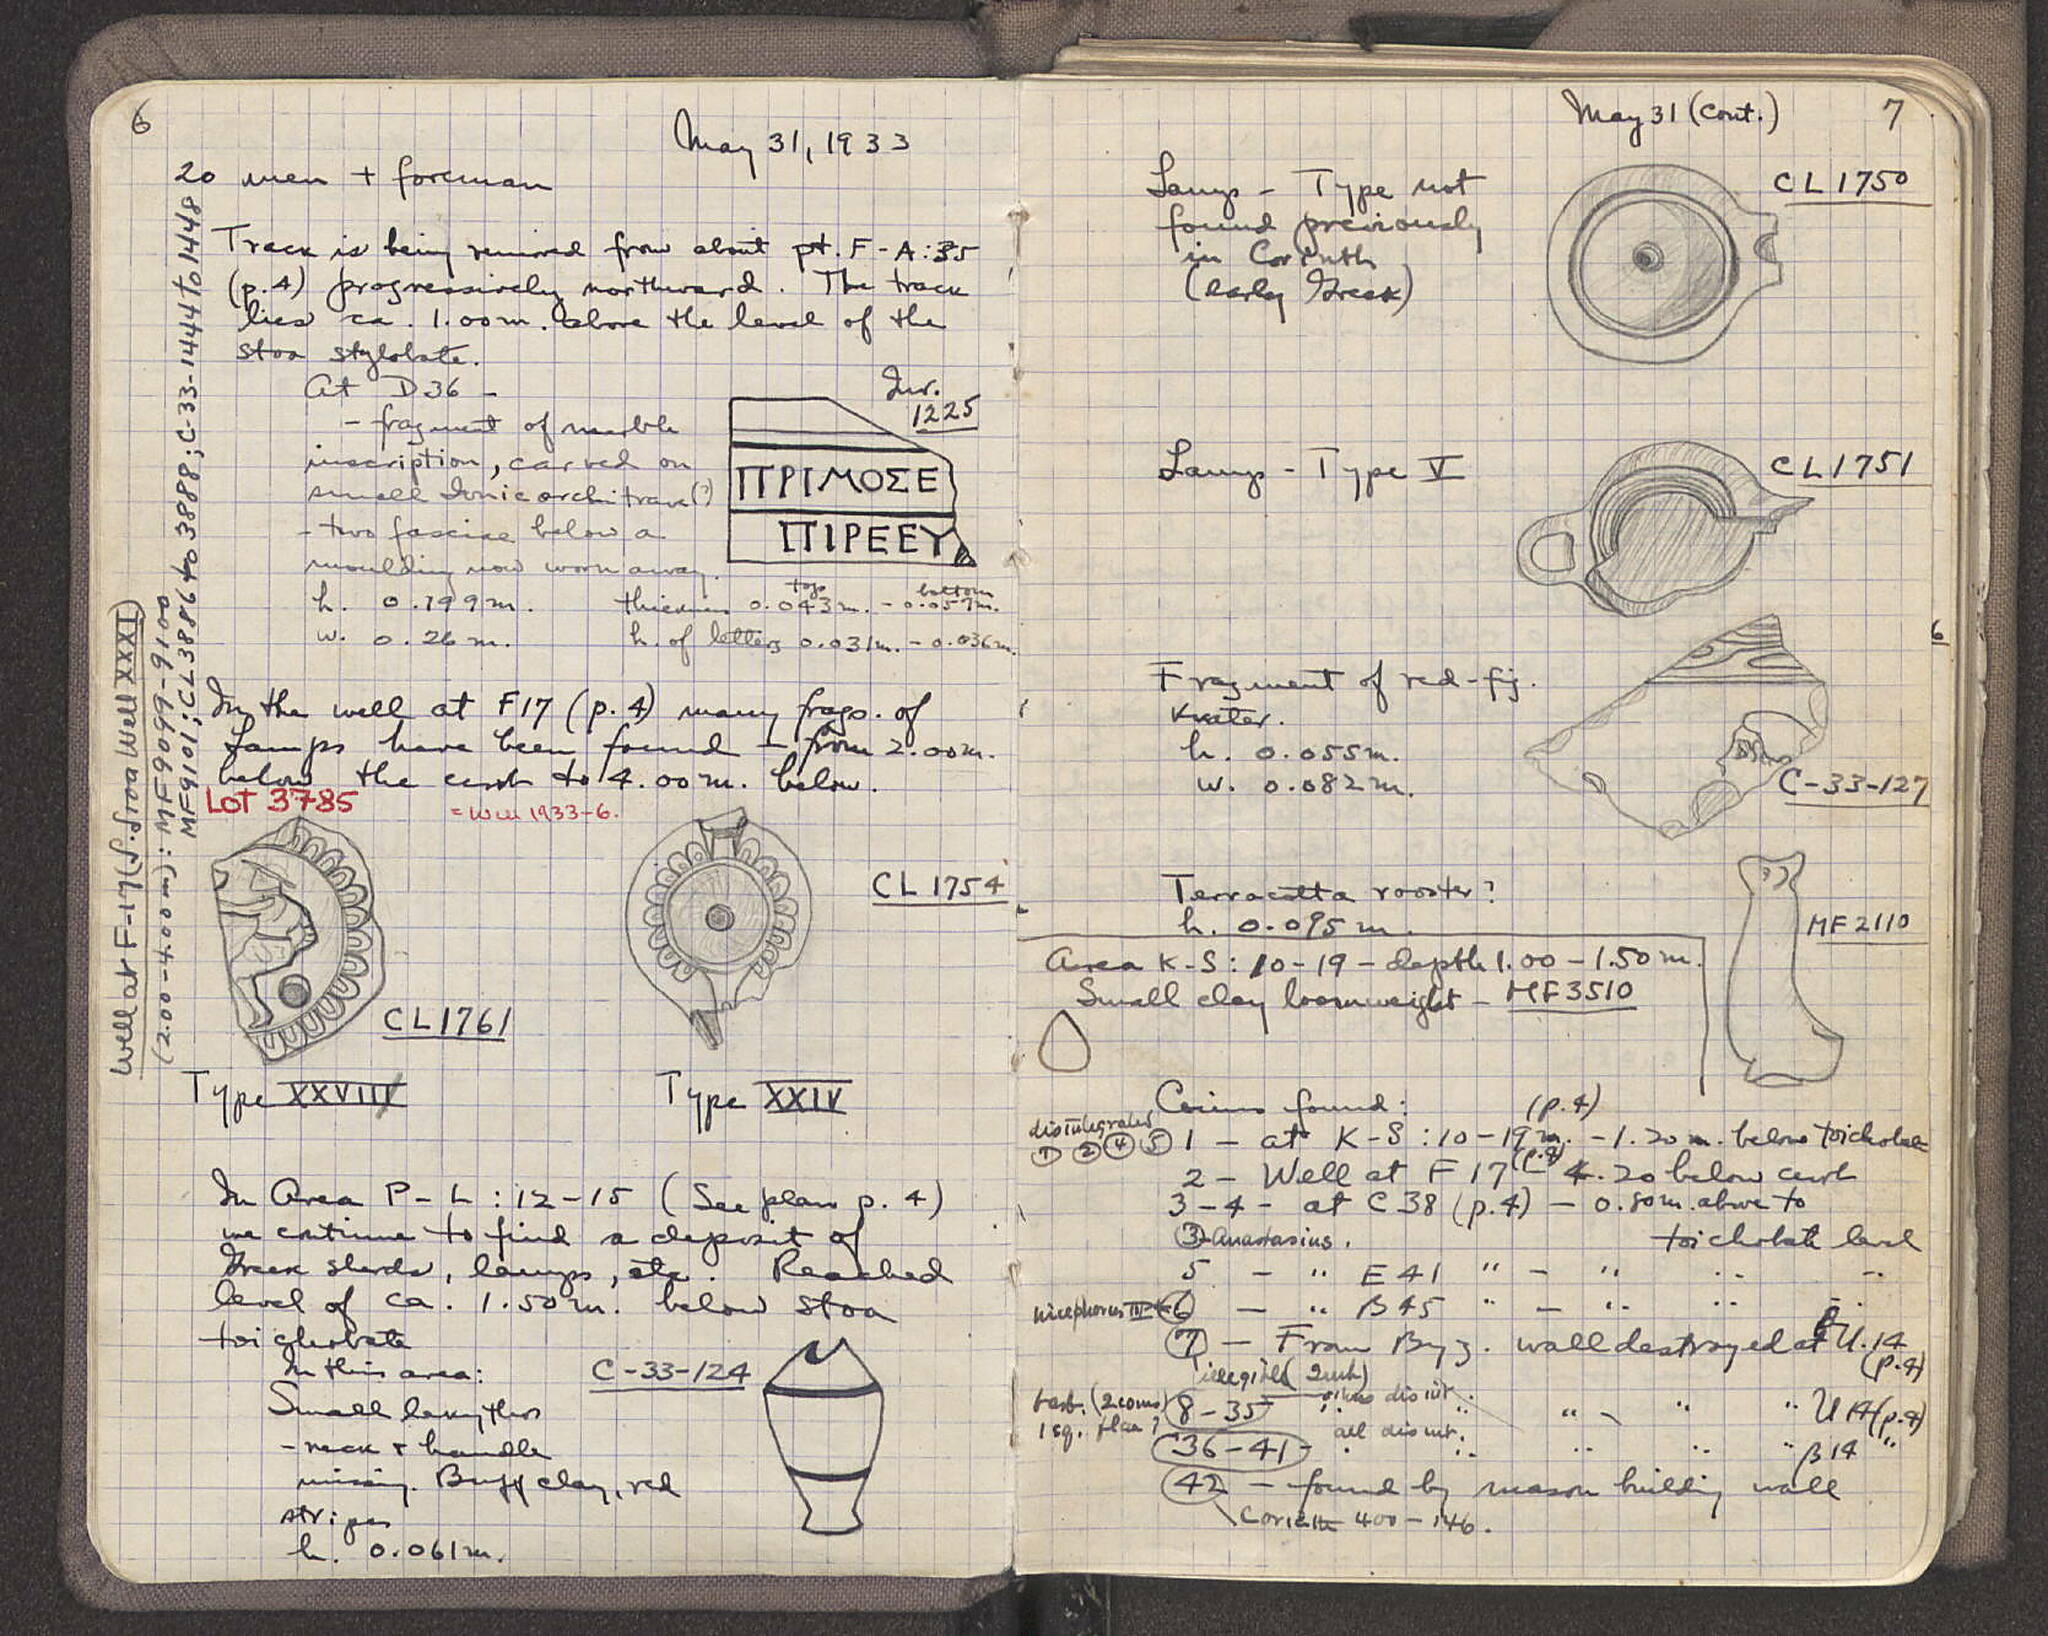 6
May 31, 1933
20 men + foreman
Track is being removed from about pt. F-A:35
(p.4) progressively northward. The track
lies ca. 1.00m. above the level of the
stoa stylobate.
At D36 -
- fragment of marble
inscription, carved on
small Ionic architrave(?)
- two fasciae below a
moulding now worn away.
Inv.
1225
ΠΡΙΜΟΣΕ
ΠΙΡΕΕΥ
h. 0.199m. thickness top 0.043m. - bottom 0.057m.
w. 0.26m. h. of letters 0.031m. - 0.036m.
In the well at F17 (p.4) many frags. of
Lamps have been found - from 2.00m.
below the curb to 4.00m. below.
Lot 3785
= ww 1933-6.
CL1761
CL 1754
Type XXVIII
Type XXIV
In Area P-L:12-15 (See plan p. 4)
we continue to find a deposit of
Greek sherds, lamps, etc. Reached
level of ca. 1.50m. below stoa
toichobate
In this area:
C-33-124
Small lekythos
- neck & handle
missing. Buff clay, red
stripes
h. 0.061m.
Well at F-17 (S. Stoa Well XXXI)
(2.00-4.00m): MF9099-9100
MF9101; CL3886 to 3888; C-33-1444 to 1448
May 31 (cont.)
7
Lamp - Type not
found previously
in Corinth
(early Greek)
CL1750
Lamp - Type V
CL1751
Fragment of red-fig.
krater.
h. 0.055m.
w. 0.082m.
C-33-127
6
Terracotta rooster?
h. 0.095m.
MF2110
Area K-S:10-19 - depth 1.00-1.50m.
Small clay loomweight - MF3510
Coins found: (p.4)
disintegrated
① ② ④ ⑤ 1 - at K-S:10-19m. - 1.20m. below toichobate
2 - Well at F17 (p.4) 4.20 below curb
3-4- at C38 (p.4) - 0.80m. above to
③-Anastasius. toichobate level
5 - " E41 " - " " "
Nicephorus III ⑥ - " B45 " - " " "
⑦ - From Byz. wall destroyed at U.14
(p.4)
illegible (2 unk)
8-35 " " " U14 (p.4)
all disint.
36-41 - " " " " B14 "
42 - found by mason building wall
Corinth 400-146.